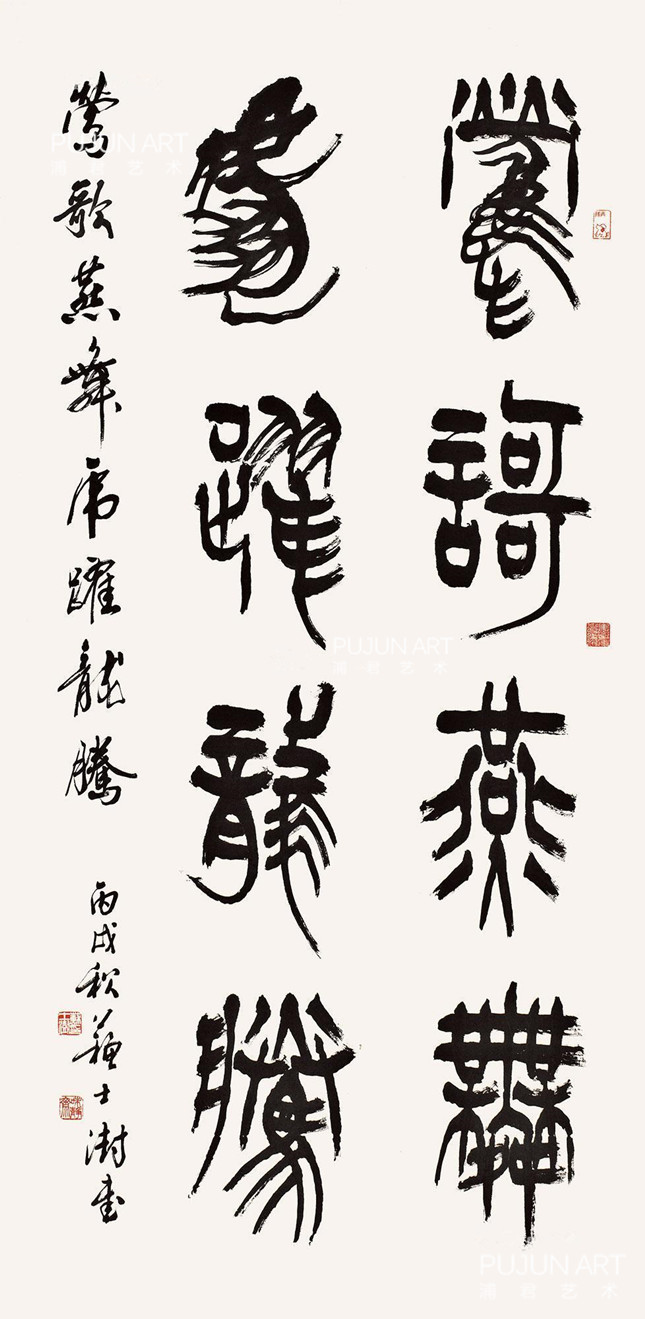 鶯謌燕舞
虎躍龍騰
鶯歌燕舞虎躍龍騰
丙戌秋蘇士澍書
PUJUN ART
浦君艺术
PUJUN ART
浦君艺术
PUJUN ART
浦君艺术